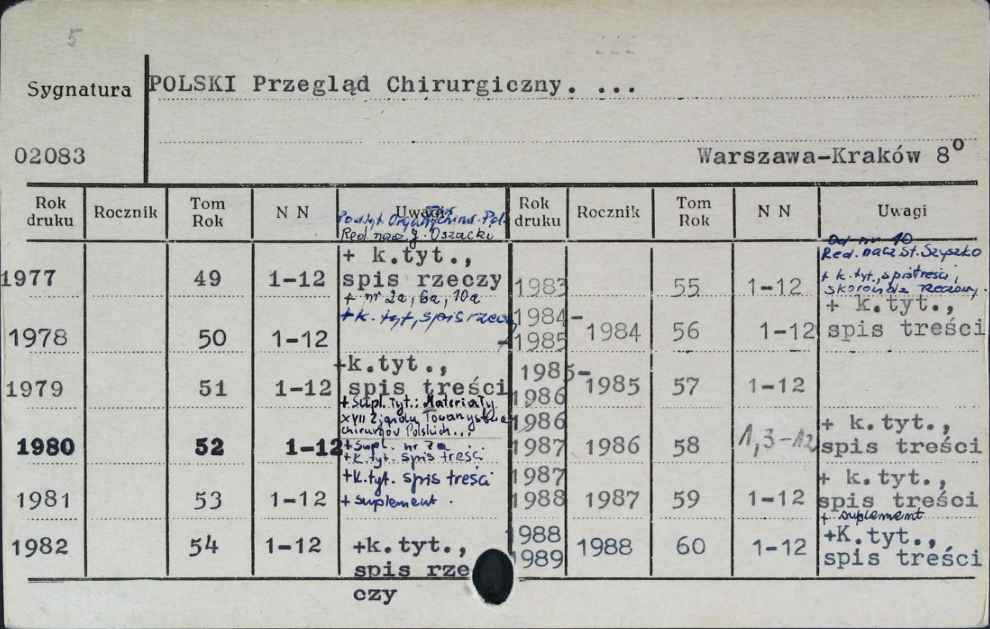 5
Sygnatura POLSKI Przegląd Chirurgiczny. ...
02083 Warszawa-Kraków 8º
Rok druku Rocznik Tom Rok N N Uwagi Rok druku Rocznik Tom Rok N N Uwagi
Red. nacz. J. Oszacki
Od nr 10
Red. nacz. St. Szyszko
1977 49 1-12 + k.tyt.,
spis rzeczy
+ nr 2a, 6a, 10a
1978 50 1-12 + k. tyt, spis rzeczy
1979 51 1-12 +k.tyt.,
spis treści
+ supl. tyt.: Materiały
XVII Zjazdu Towarzystwa
chirurgów Polskich...
1980 52 1-12 + supl. nr 7a ...
+ k.tyt. spis treści
1981 53 1-12 + k.tyt. spis treści
+ suplement.
1982 54 1-12 +k.tyt.,
spis rze
czy
1983 55 1-12 + k.tyt., spis treści,
skorowidz rzeczowy.
1984-
1985 1984 56 1-12 + k.tyt.,
spis treści
1985-
1986 1985 57 1-12
1986
1987 1986 58 1,3-12 + k.tyt.,
spis treści
1987
1988 1987 59 1-12 + k.tyt.,
spis treści
+ suplement
1988
1989 1988 60 1-12 +K.tyt.,
spis treści